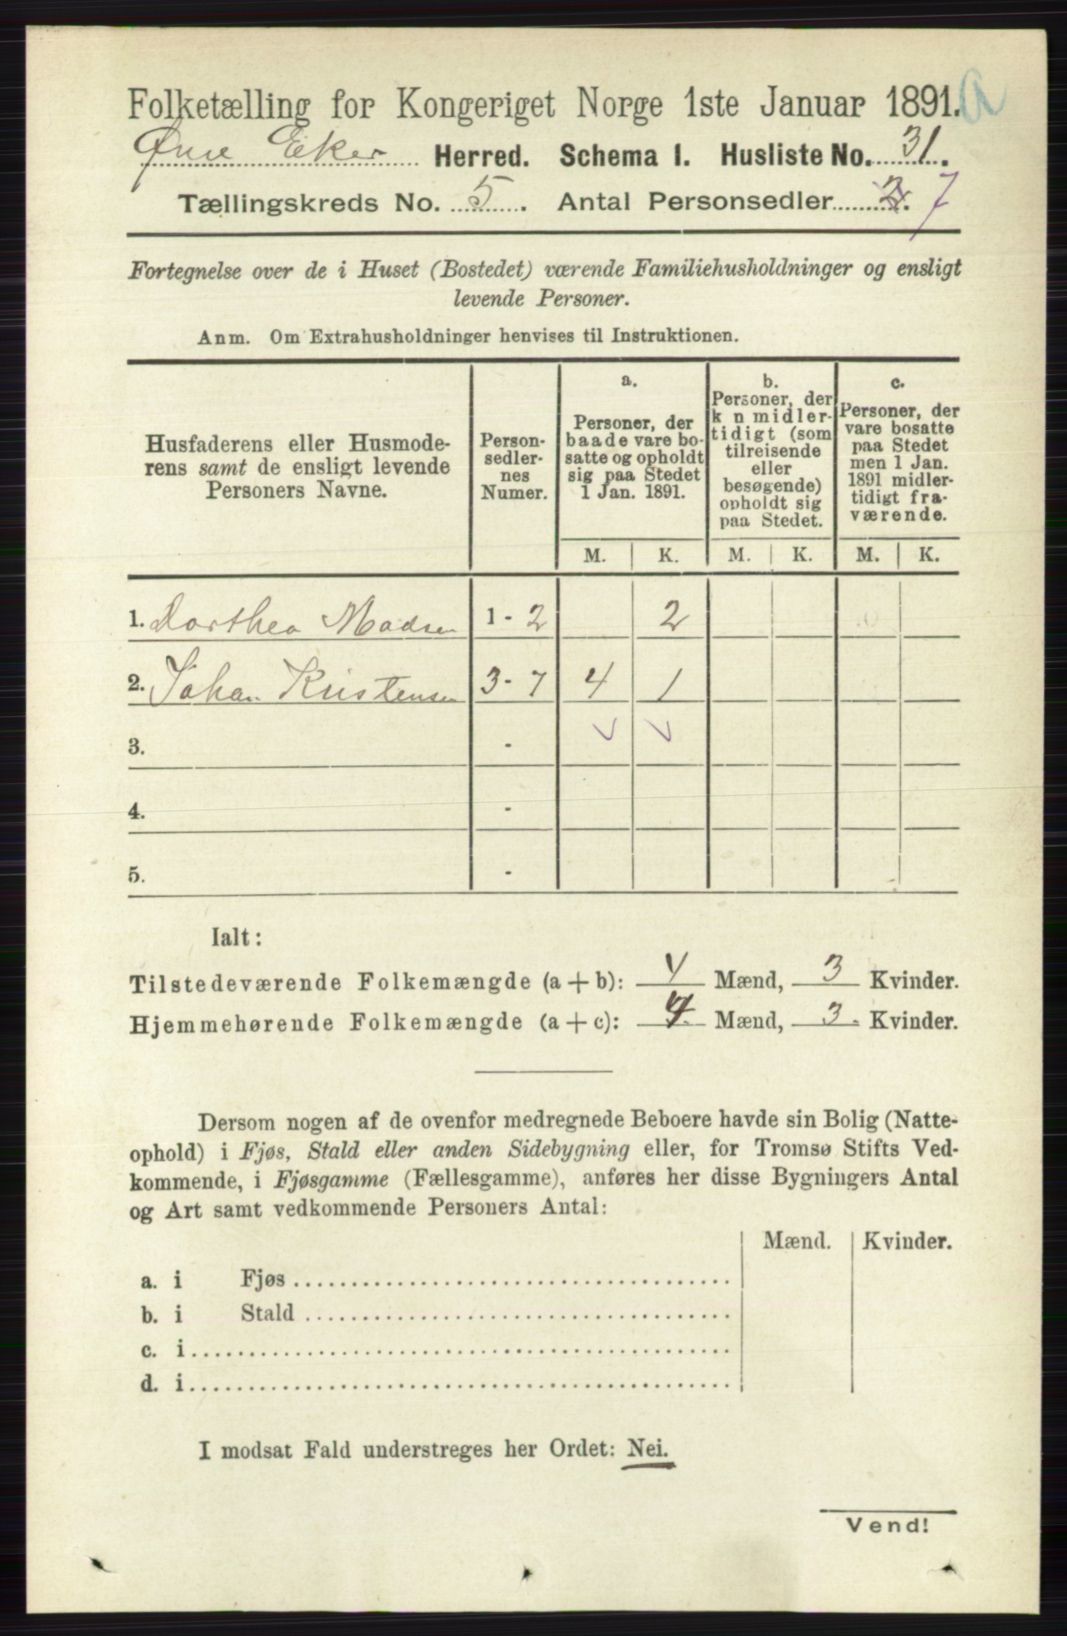 Folketælling for Kongeriget Norge 1ste Januar 1891. a
Øvre Eker Herred. Schema I. Husliste No. 31.
Tællingskreds No. 5. Antal Personsedler 2. 7
Fortegnelse over de i Huset (Bostedet) værende Familiehusholdninger og ensligt
levende Personer.
Anm. Om Extrahusholdninger henvises til Instruktionen.
Husfaderens eller Husmode-
rens samt de ensligt levende
Personers Navne.
Person-
sedler-
nes
Numer.
a.
Personer, der
baade vare bo-
satte og opholdt
sig paa Stedet
1 Jan. 1891.
b.
Personer, der
k n midler-
tidigt (som
tilreisende
eller
besøgende)
opholdt sig
paa Stedet.
c.
Personer, der
vare bosatte
paa Stedet
men 1 Jan.
1891 midler-
tidigt fra-
værende.
M. K. M. K. M. K.
1. Dorthea Madsen 1 - 2 2
2. Johan Kristensen 3 - 7 4 1
3. -
4. -
5. -
Ialt:
Tilstedeværende Folkemængde (a + b): 4 Mænd, 3 Kvinder.
Hjemmehørende Folkemængde (a + c): 4. Mænd, 3. Kvinder.
Dersom nogen af de ovenfor medregnede Beboere havde sin Bolig (Natte-
ophold) i Fjøs, Stald eller anden Sidebygning eller, for Tromsø Stifts Ved-
kommende, i Fjøsgamme (Fællesgamme), anføres her disse Bygningers Antal
og Art samt vedkommende Personers Antal:
Mænd. Kvinder.
a. i Fjøs
b. i Stald
c. i
d. i
I modsat Fald understreges her Ordet: Nei.
Vend!